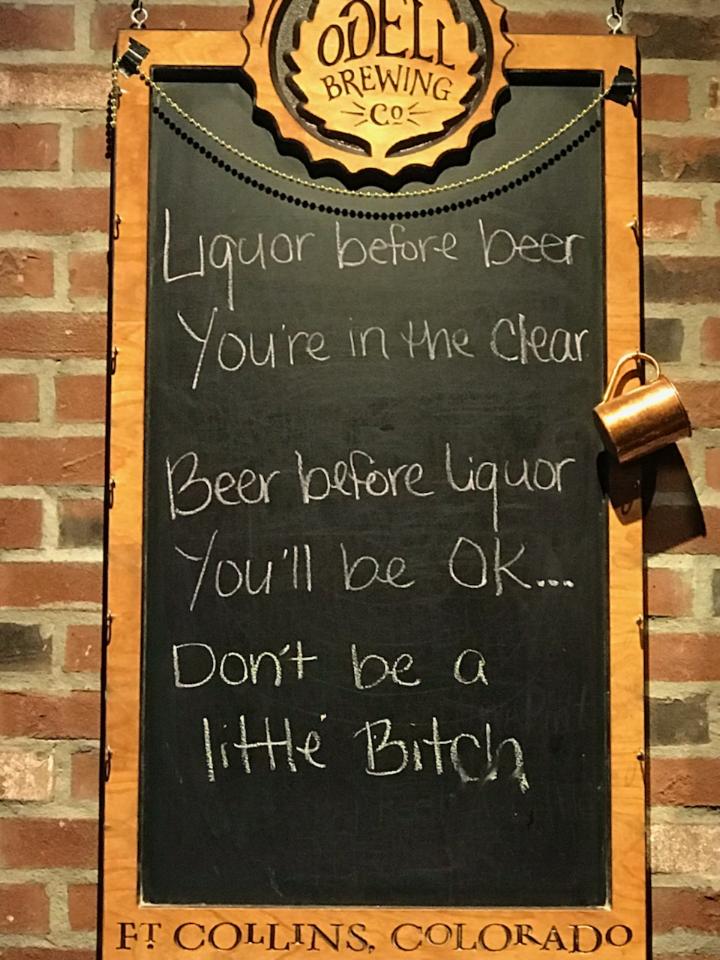 ODELL
BREWING
Co
Liquor before beer
You're in the clear
Beer before liquor
You'll be OK...
Don't be a
little Bitch
FT COLLINS, COLORADO